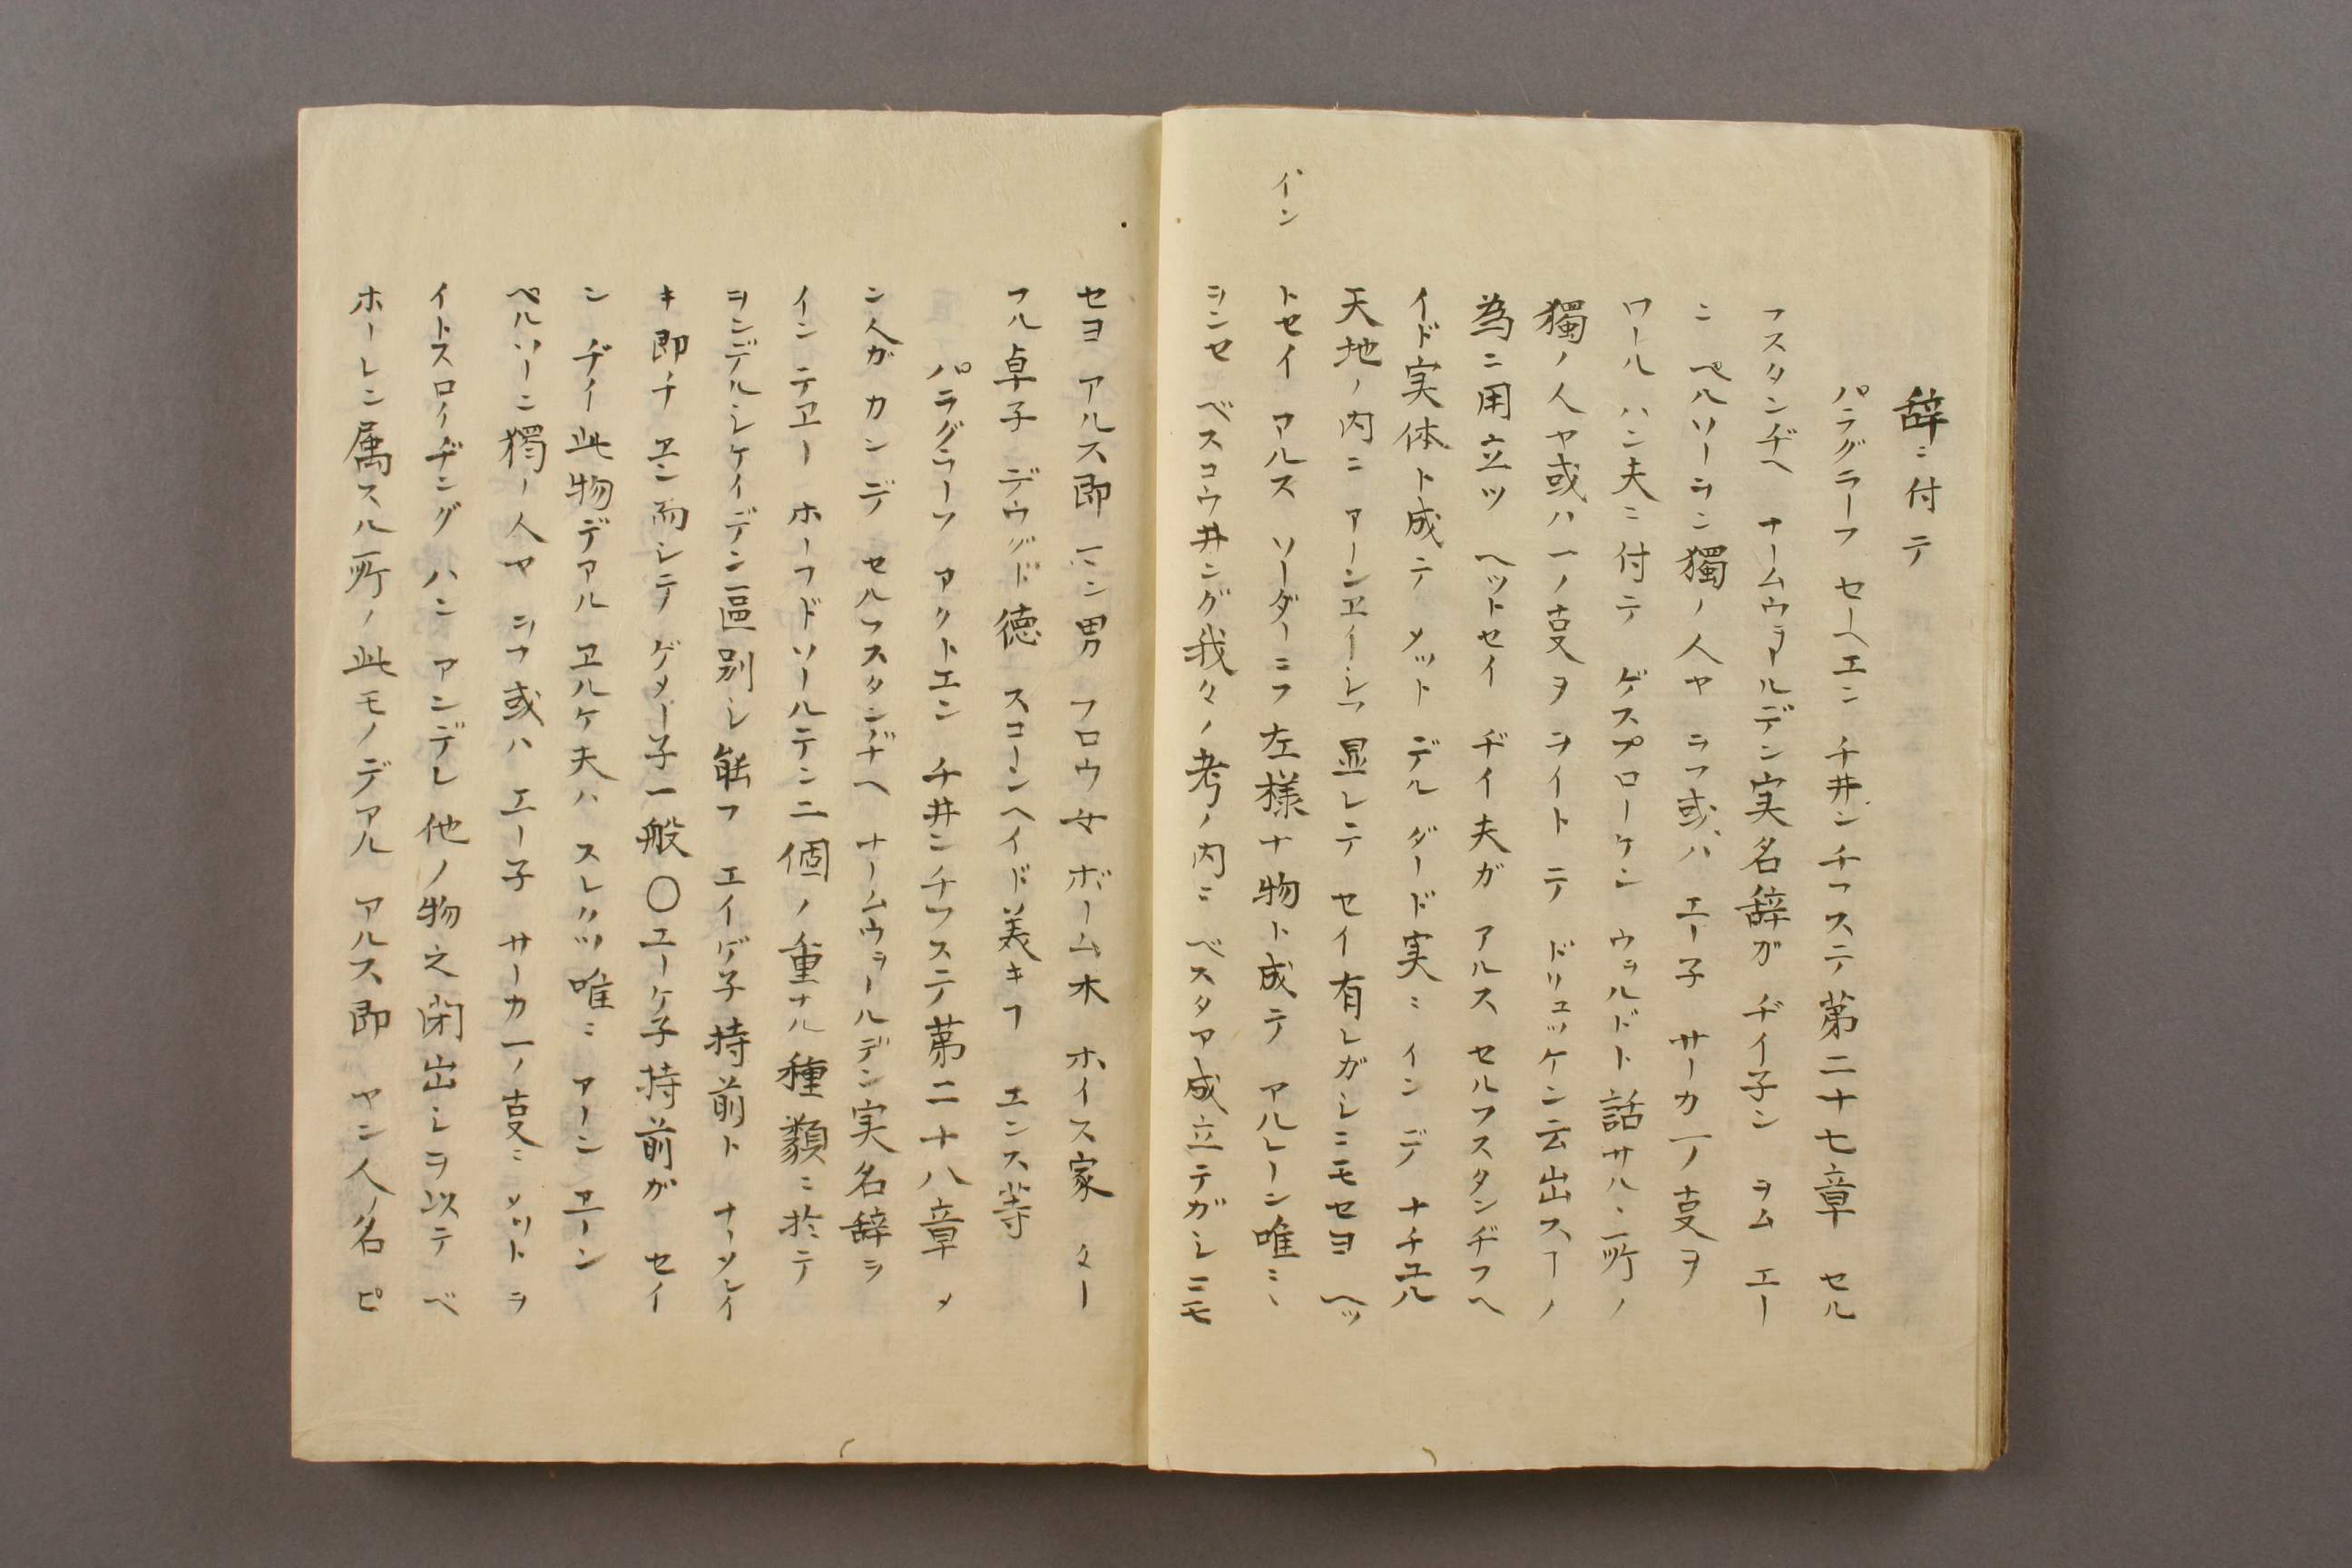 辞ニ付テ
パラグラーフ セーヘエン チ井ンチフステ第二十七章 セル
フスタンヂヘ ナームウヲアルデン実名辞ガ ヂイ子ン ヲム エー
ニ ペルソーラン獨ノ人ヤ ヲフ或ハ エー子 サーカ一ノ㕝ヲ
ワール ハン夫ニ付テ ゲスプローケン ウヲルドト話サルヽ所ノ
獨ノ人ヤ或ハ一ノ㕝ヲ ヲイト テ ドリュッケン云出スヿノ
為ニ用立ツ ヘットセイ ヂイ夫ガ アルス セルフスタンヂフヘ
イド実体ト成テ メット デル ダード実ニ イン デ ナチユル
天地ノ内ニ アーンヱイシフ顕レテ セイ有レガシニモセヨ ヘッ
イン
トセイ アルス ソーダーニフ左様ナ物ト成テ アルレーン唯ニヽ
ヲンセ ベスコウ井ング我々ノ考ノ内ニ ベスタアﾞ成立テガシニモ
セヨ アルス即 マン男 フロウ女 ボーム木 ホイス家 ター
フル卓子 デウグド徳 スコーンヘイド美キヿ エンス等
パラグラーフ アクトエン チ井ンチフステ第二十八章 メ
ン人ガ カン デ セルフスタンヂヘ ナームウヲールデン実名辞ヲ
イン テヱー ホーフドソールテン二個ノ重ナル種類ニ於テ
ヲンデルシケイデン區別シ能フ エイゲ子持前ト ナーメレイ
キ即チ ヱン而シテ ゲメー子一般〇エーケ子持前ガ セイ
ン ヂイ此物デアル ヱルケ夫ハ スレクツ唯ニ アーン エーン
ペルソーニ獨ノ人ヤ ヲフ或ハ エー子 サーカ一ノ㕝ニ メット ヲ
イトスロイヂング ハン アンデレ他ノ物之閉出シヲ以テ ベ
ホーレン属スル所ノ此モノデアル アルス即 ヤン人ノ名 ピ